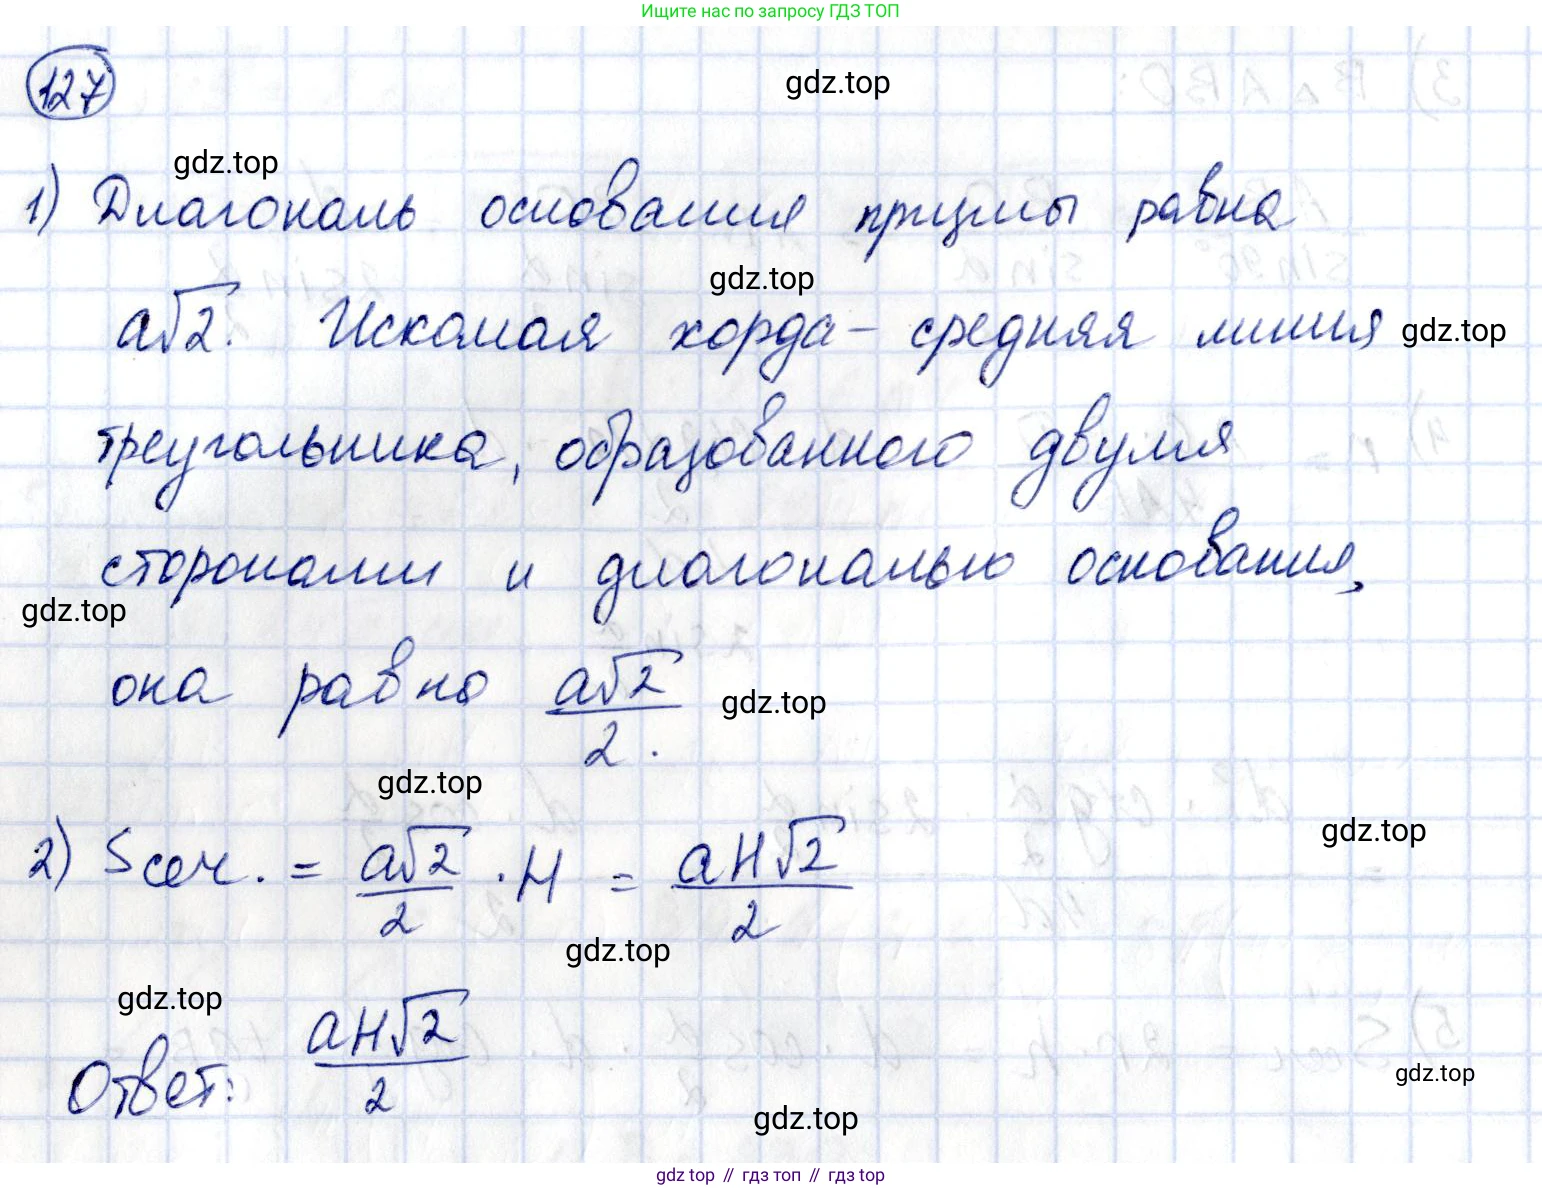 Ищите нас по запросу ГДЗ ТОП
127
gdz.top
gdz.top
1) Диагональ основания призмы равна
gdz.top
a√2. Искомая хорда – средняя линия
gdz.top
треугольника, образованного двумя
сторонами и диагональю основания,
gdz.top
она равна a√2/2.
gdz.top
gdz.top
gdz.top
2) Sсеч. = a√2/2 · H = aH√2/2
gdz.top
gdz.top
Ответ: aH√2/2
gdz.top
gdz.top
gdz.top // гдз топ // gdz top